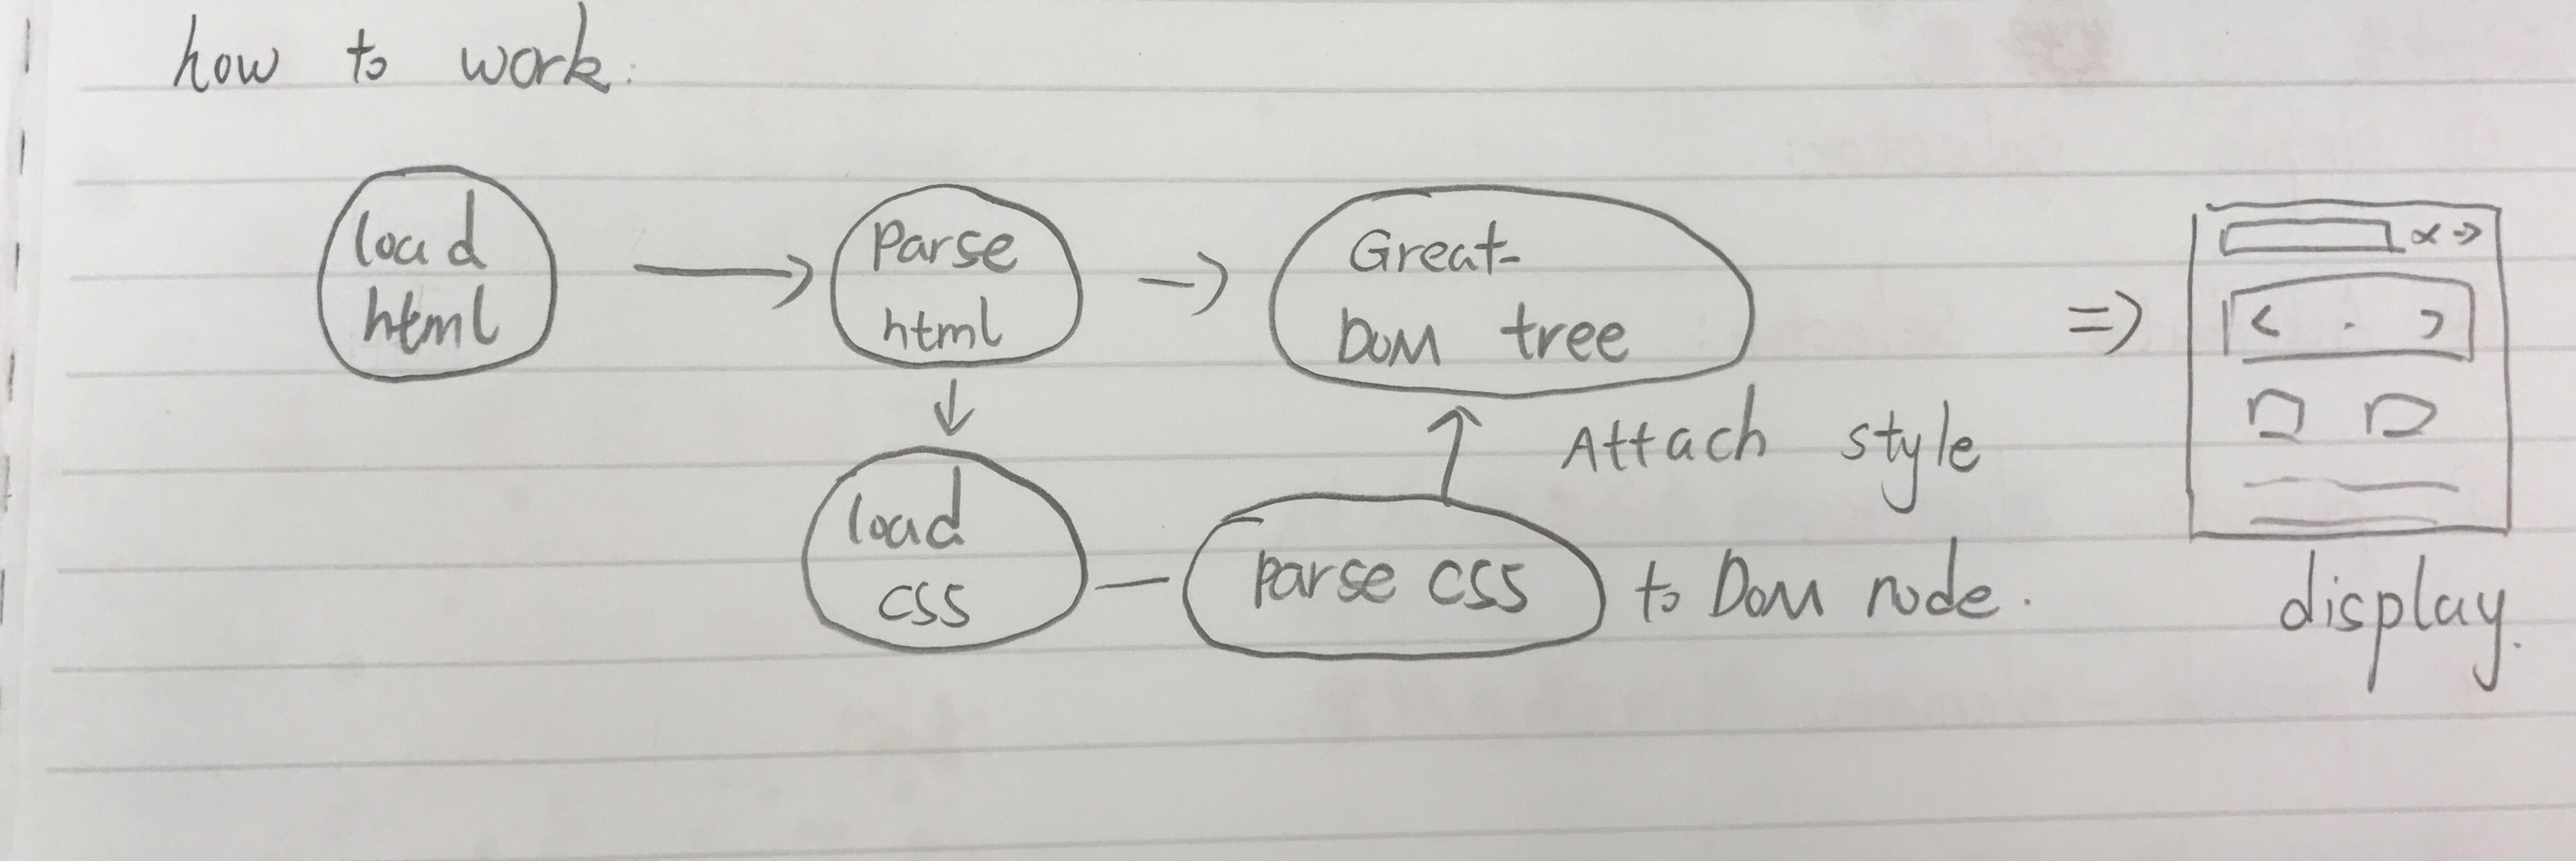 how to work:
load
html
Parse
html
Great
DOM tree
load
css
parse css
Attach style
to DOM node.
display.